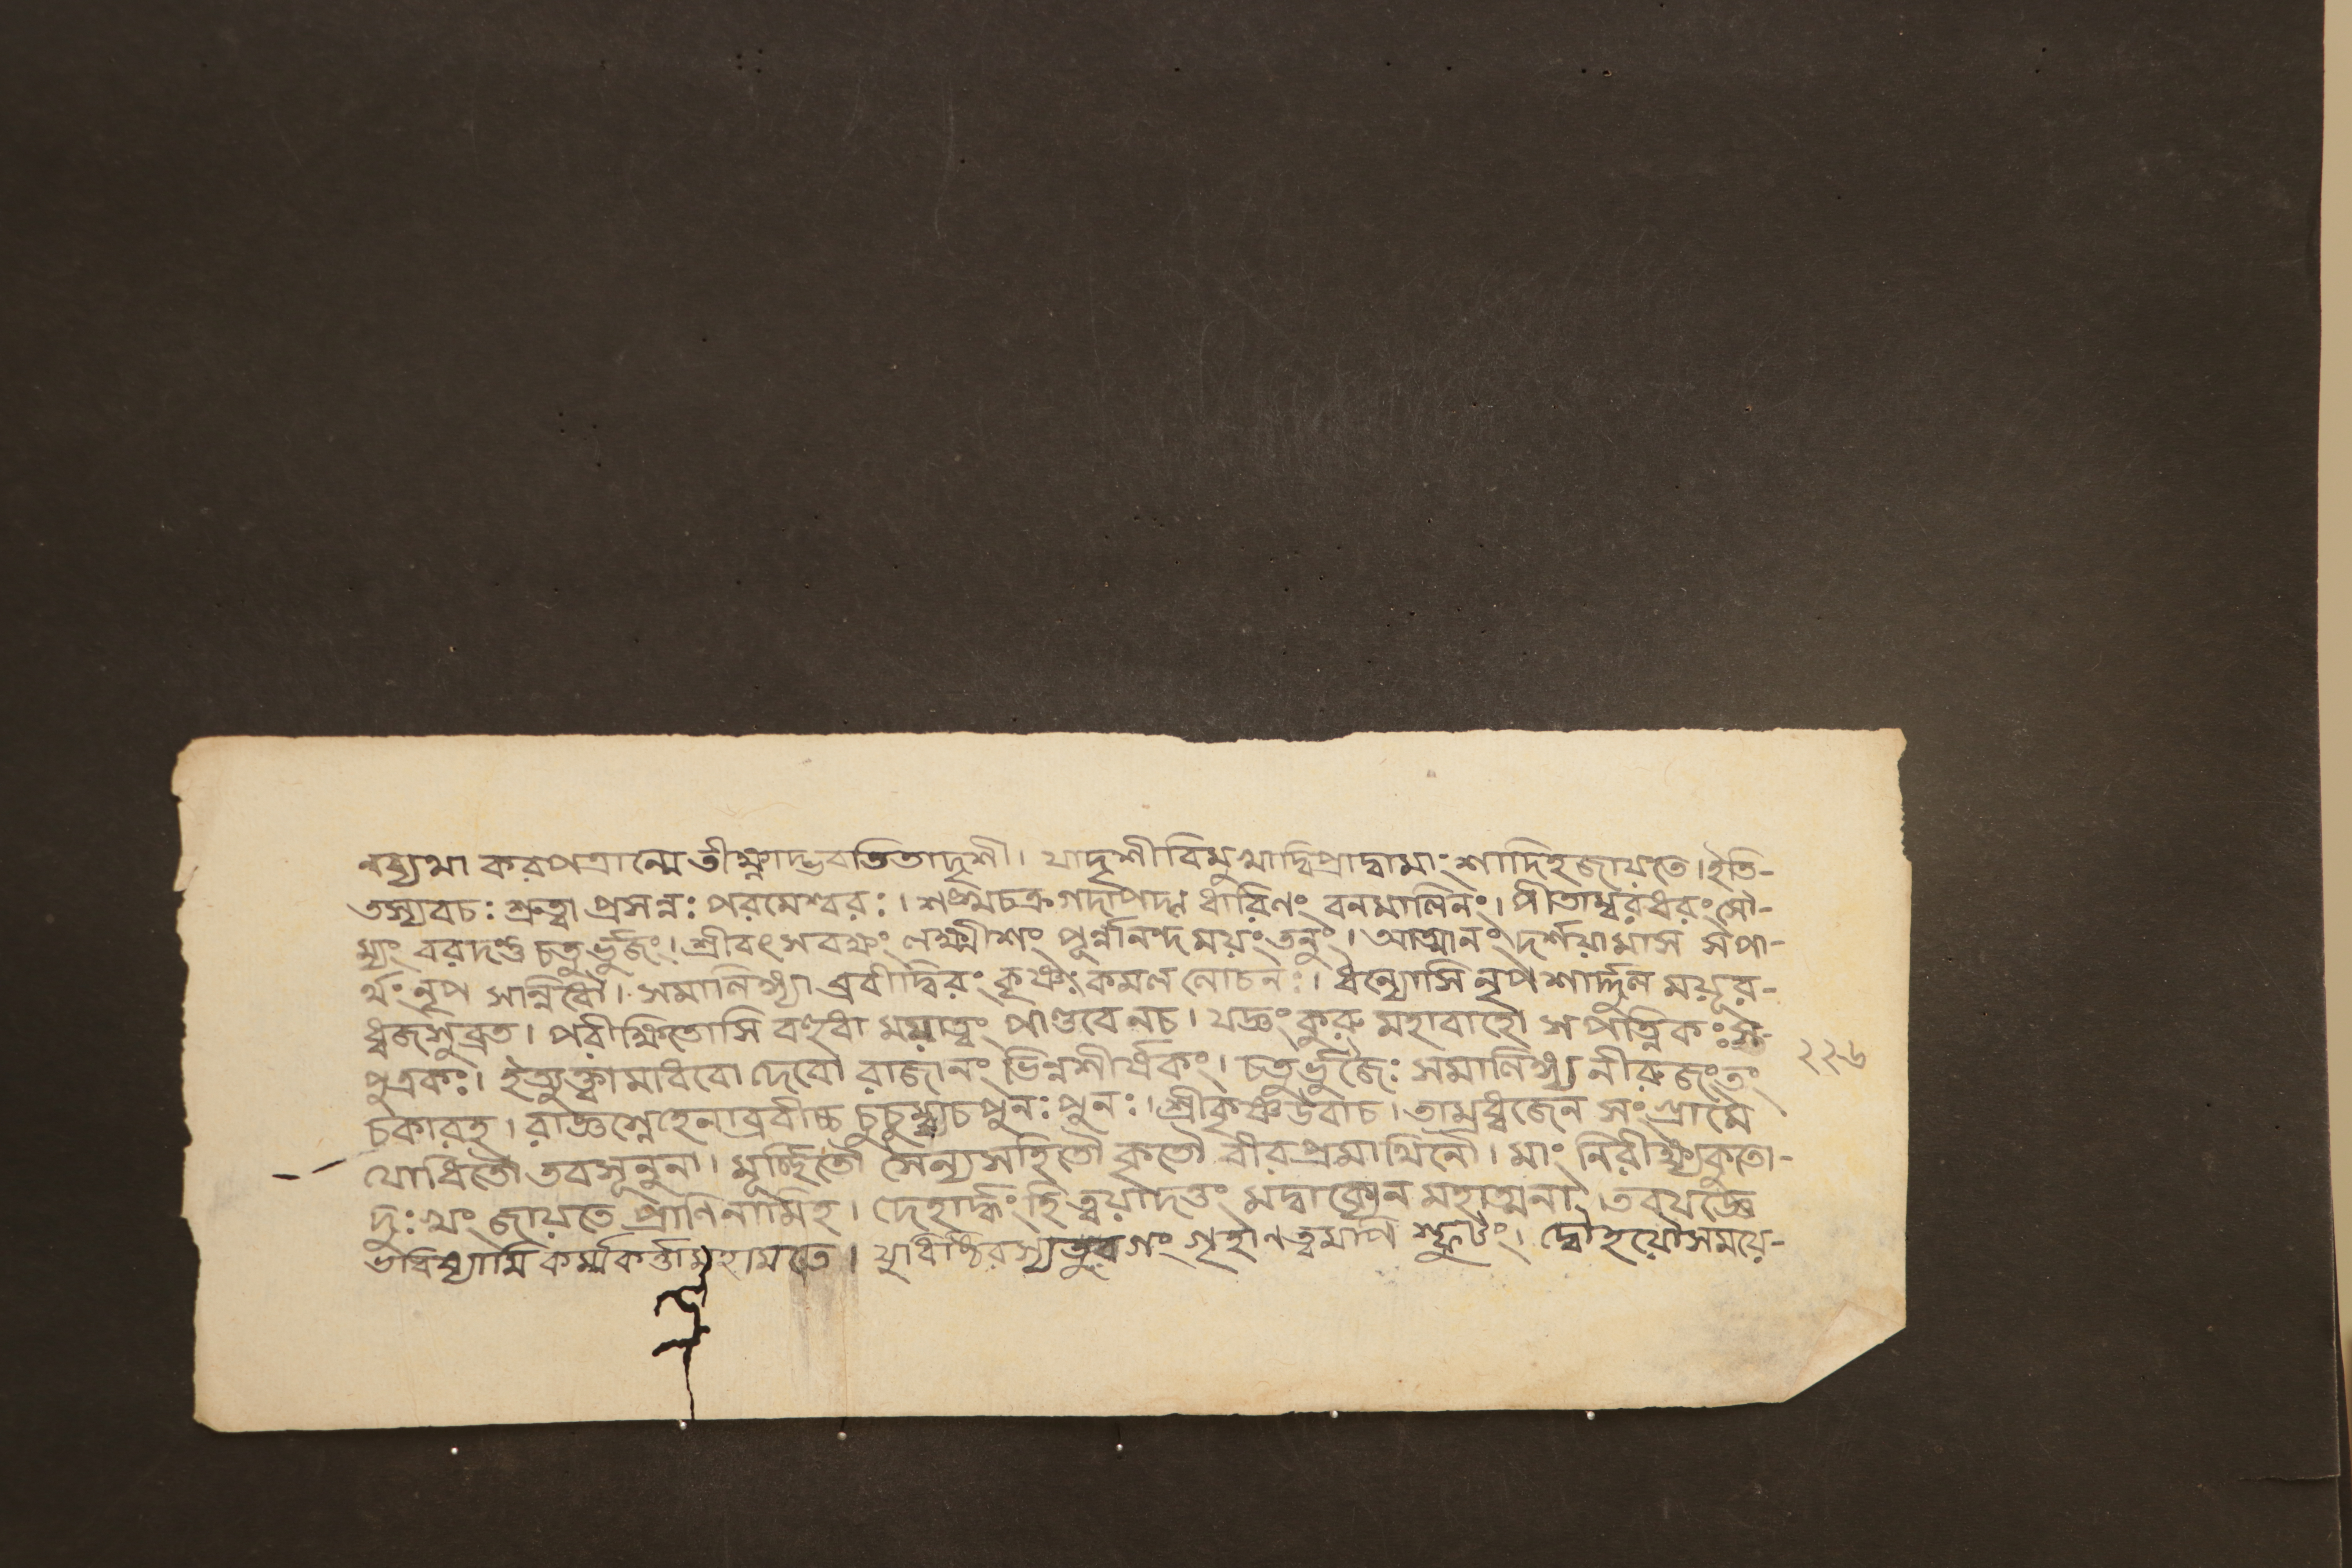 নব্যথা করপত্রান্মে তীক্ষ্ণাদ্ভবতি তাদৃশী। যাদৃশী বিমুখাদ্বিপ্রাদ্বামাংশাদিহ জায়তে। ইতি-
তস্যবচঃ শ্রুত্বা প্রসন্নঃ পরমেশ্বরঃ। শঙ্খচক্রগদাপদ্ম ধারিণং বনমালিনং। পীতাম্বরধরং সৌ-
ম্যং বরাদণ্ড চতুর্ভুজং। শ্রীবৎসবক্ষং লক্ষ্মীশং পূর্ন্নানন্দময়ং তনুং। আত্মানং দর্শয়ামাস সপা-
র্থং নৃপ সান্নিধৌ। সমালিঙ্গ্যা ব্রবীদ্বিরং কৃষ্ণঃ কমল লোচনঃ। ধন্যোসি নৃপ শার্দ্দুল ময়ূর-
ধ্বজ সুব্রত। পরীক্ষিতোসি বহুধা ময়াত্বং পাণ্ডবে নচ। যজ্ঞং কুরু মহাবাহো সপত্নিকঃ স-
পুত্রকঃ। ইত্যুক্ত্বা মাধবো দেবো রাজানং ভিন্নশীর্ষকং। চতুর্ভুজৈঃ সমালিঙ্গ্য নীরুজং তং ২২৬
চকারহ। রাজ্ঞ স্নেহেনাব্রবীচ্চ চুচুম্বাচ পুনঃ পুনঃ। শ্রীকৃষ্ণ উবাচ। তাম্রধ্বজেন সংগ্রামে
যোধিতৌ তবসূনুনা। মূর্চ্ছিতৌ সৈন্যসহিতৌ কৃতৌ বীর প্রমাথিনৌ। মাং নিরীক্ষ্য কুতো-
দুঃখং জায়তে প্রাণিনামিহ। দেহার্দ্ধং হি ত্বয়াদত্তং মদ্বাক্যেন মহাত্মনা। তবযজ্ঞে
ভবিষ্যামি কর্ম্মকর্ত্তা মহামতে। যুধিষ্ঠিরস্য তুরগং গৃহাণ ত্বমপি স্ফুটং। দ্বৌ হয়ৌ সময়ে-